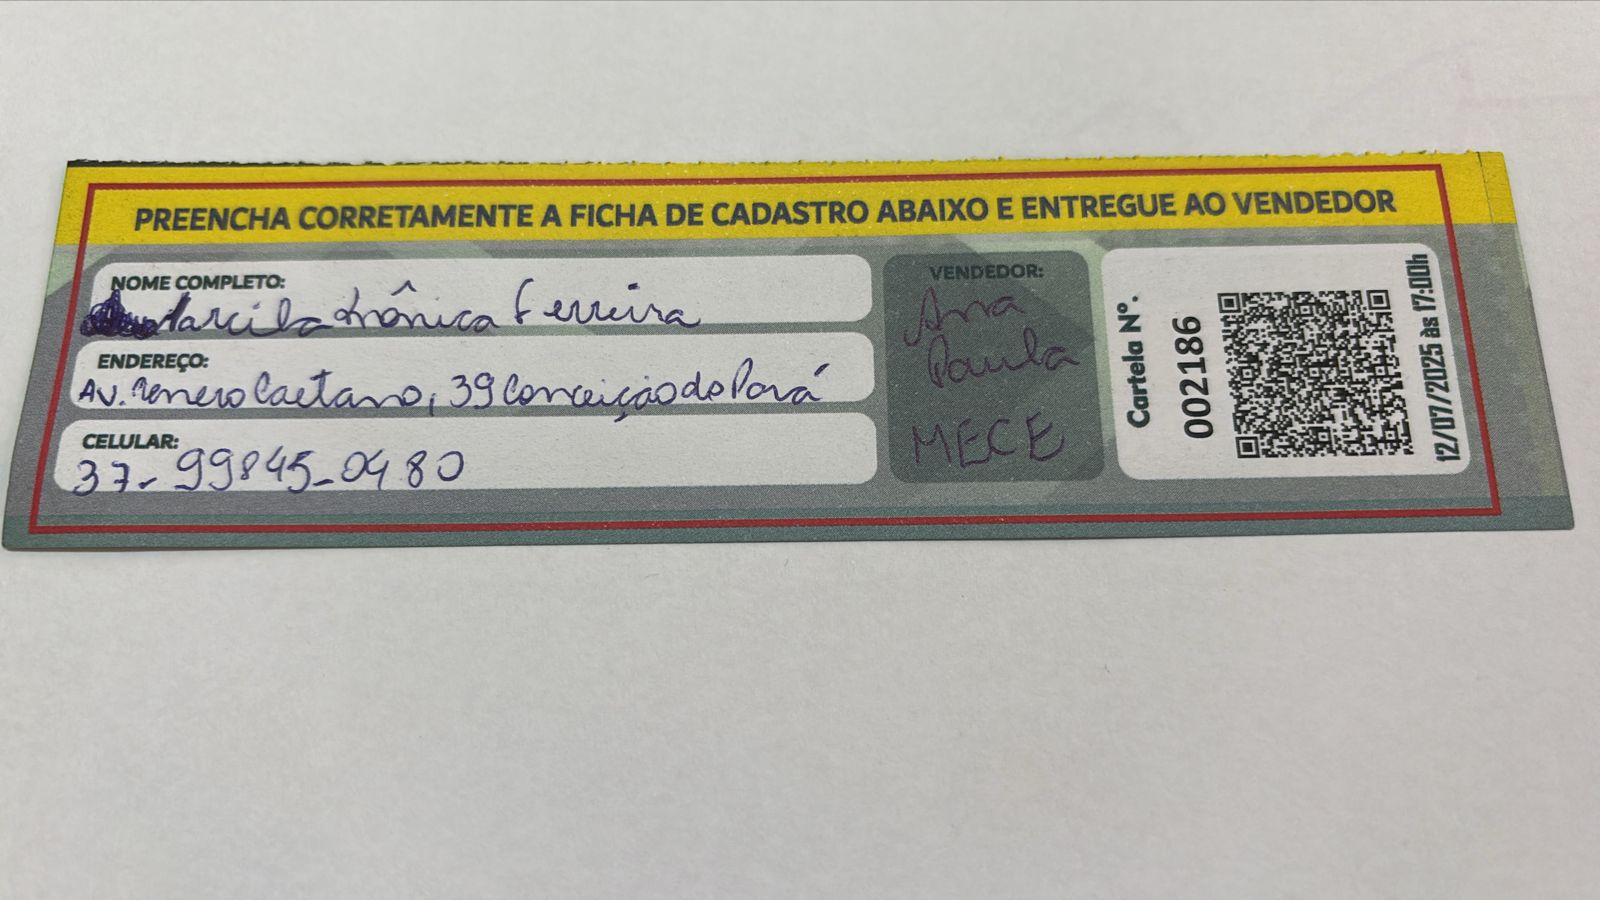 PREENCHA CORRETAMENTE A FICHA DE CADASTRO ABAIXO E ENTREGUE AO VENDEDOR
NOME COMPLETO:
Marcila Mônica Ferreira
ENDEREÇO:
Av. Caetano, 39 Conceição do Pará
CELULAR:
37-99845-0480
VENDEDOR:
Ana
Paula
MECE
Cartela Nº.
002186
12/07/2025 às 17:00h